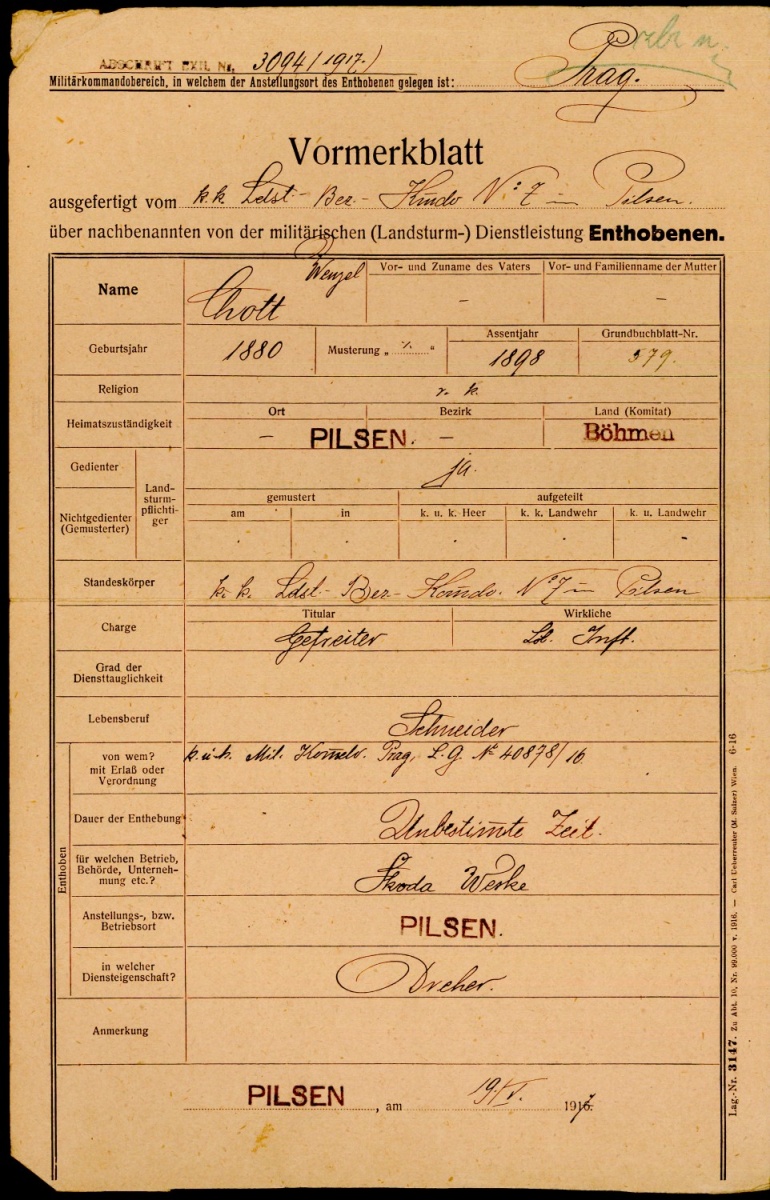 ABSCHRIFT EXH. Nr. 3094/1917.
Militärkommandobereich, in welchem der Anstellungsort des Enthobenen gelegen ist: Prag.
Vormerkblatt
ausgefertigt vom k.k Ldst.- Bez.- Kmdo Nº 7 in Pilsen.
über nachbenannten von der militärischen (Landsturm-) Dienstleistung Enthobenen.
Name Chott Wenzel Vor- und Zuname des Vaters – Vor- und Familienname der Mutter –
Geburtsjahr 1880 Musterung „ ./. “ Assentjahr 1898 Grundbuchblatt-Nr. 379.
Religion r. k.
Heimatszuständigkeit Ort Bezirk Land (Komitat)
– PILSEN. – Böhmen
Gedienter ja.
Nichtgedienter (Gemusterter) Land-sturm-pflichti-ger gemustert aufgeteilt
am in k. u. k. Heer k. k. Landwehr k. u. Landwehr
Standeskörper k. k. Ldst.- Bez.- Komdo. Nº 7 in Pilsen
Charge Titular Wirkliche
Gefreiter Ld. Inft.
Grad der
Diensttauglichkeit
Lebensberuf Schneider
Enthoben
von wem?
mit Erlaß oder
Verordnung
k.u.k. Mil. Komdo. Prag, L.G. Nº 40878/16
Dauer der Enthebung Unbestimmte Zeit.
für welchen Betrieb,
Behörde, Unterneh-
mung etc.?
Škoda Werke
Anstellungs-, bzw.
Betriebsort
PILSEN.
in welcher
Diensteigenschaft?
Dreher.
Anmerkung
PILSEN, am 19/V. 1917.
Lag.-Nr. 3147. Zu Abt. 10, Nr. 99.000 v. 1916. — Carl Ueberreuter (M. Salzer) Wien. 6-16